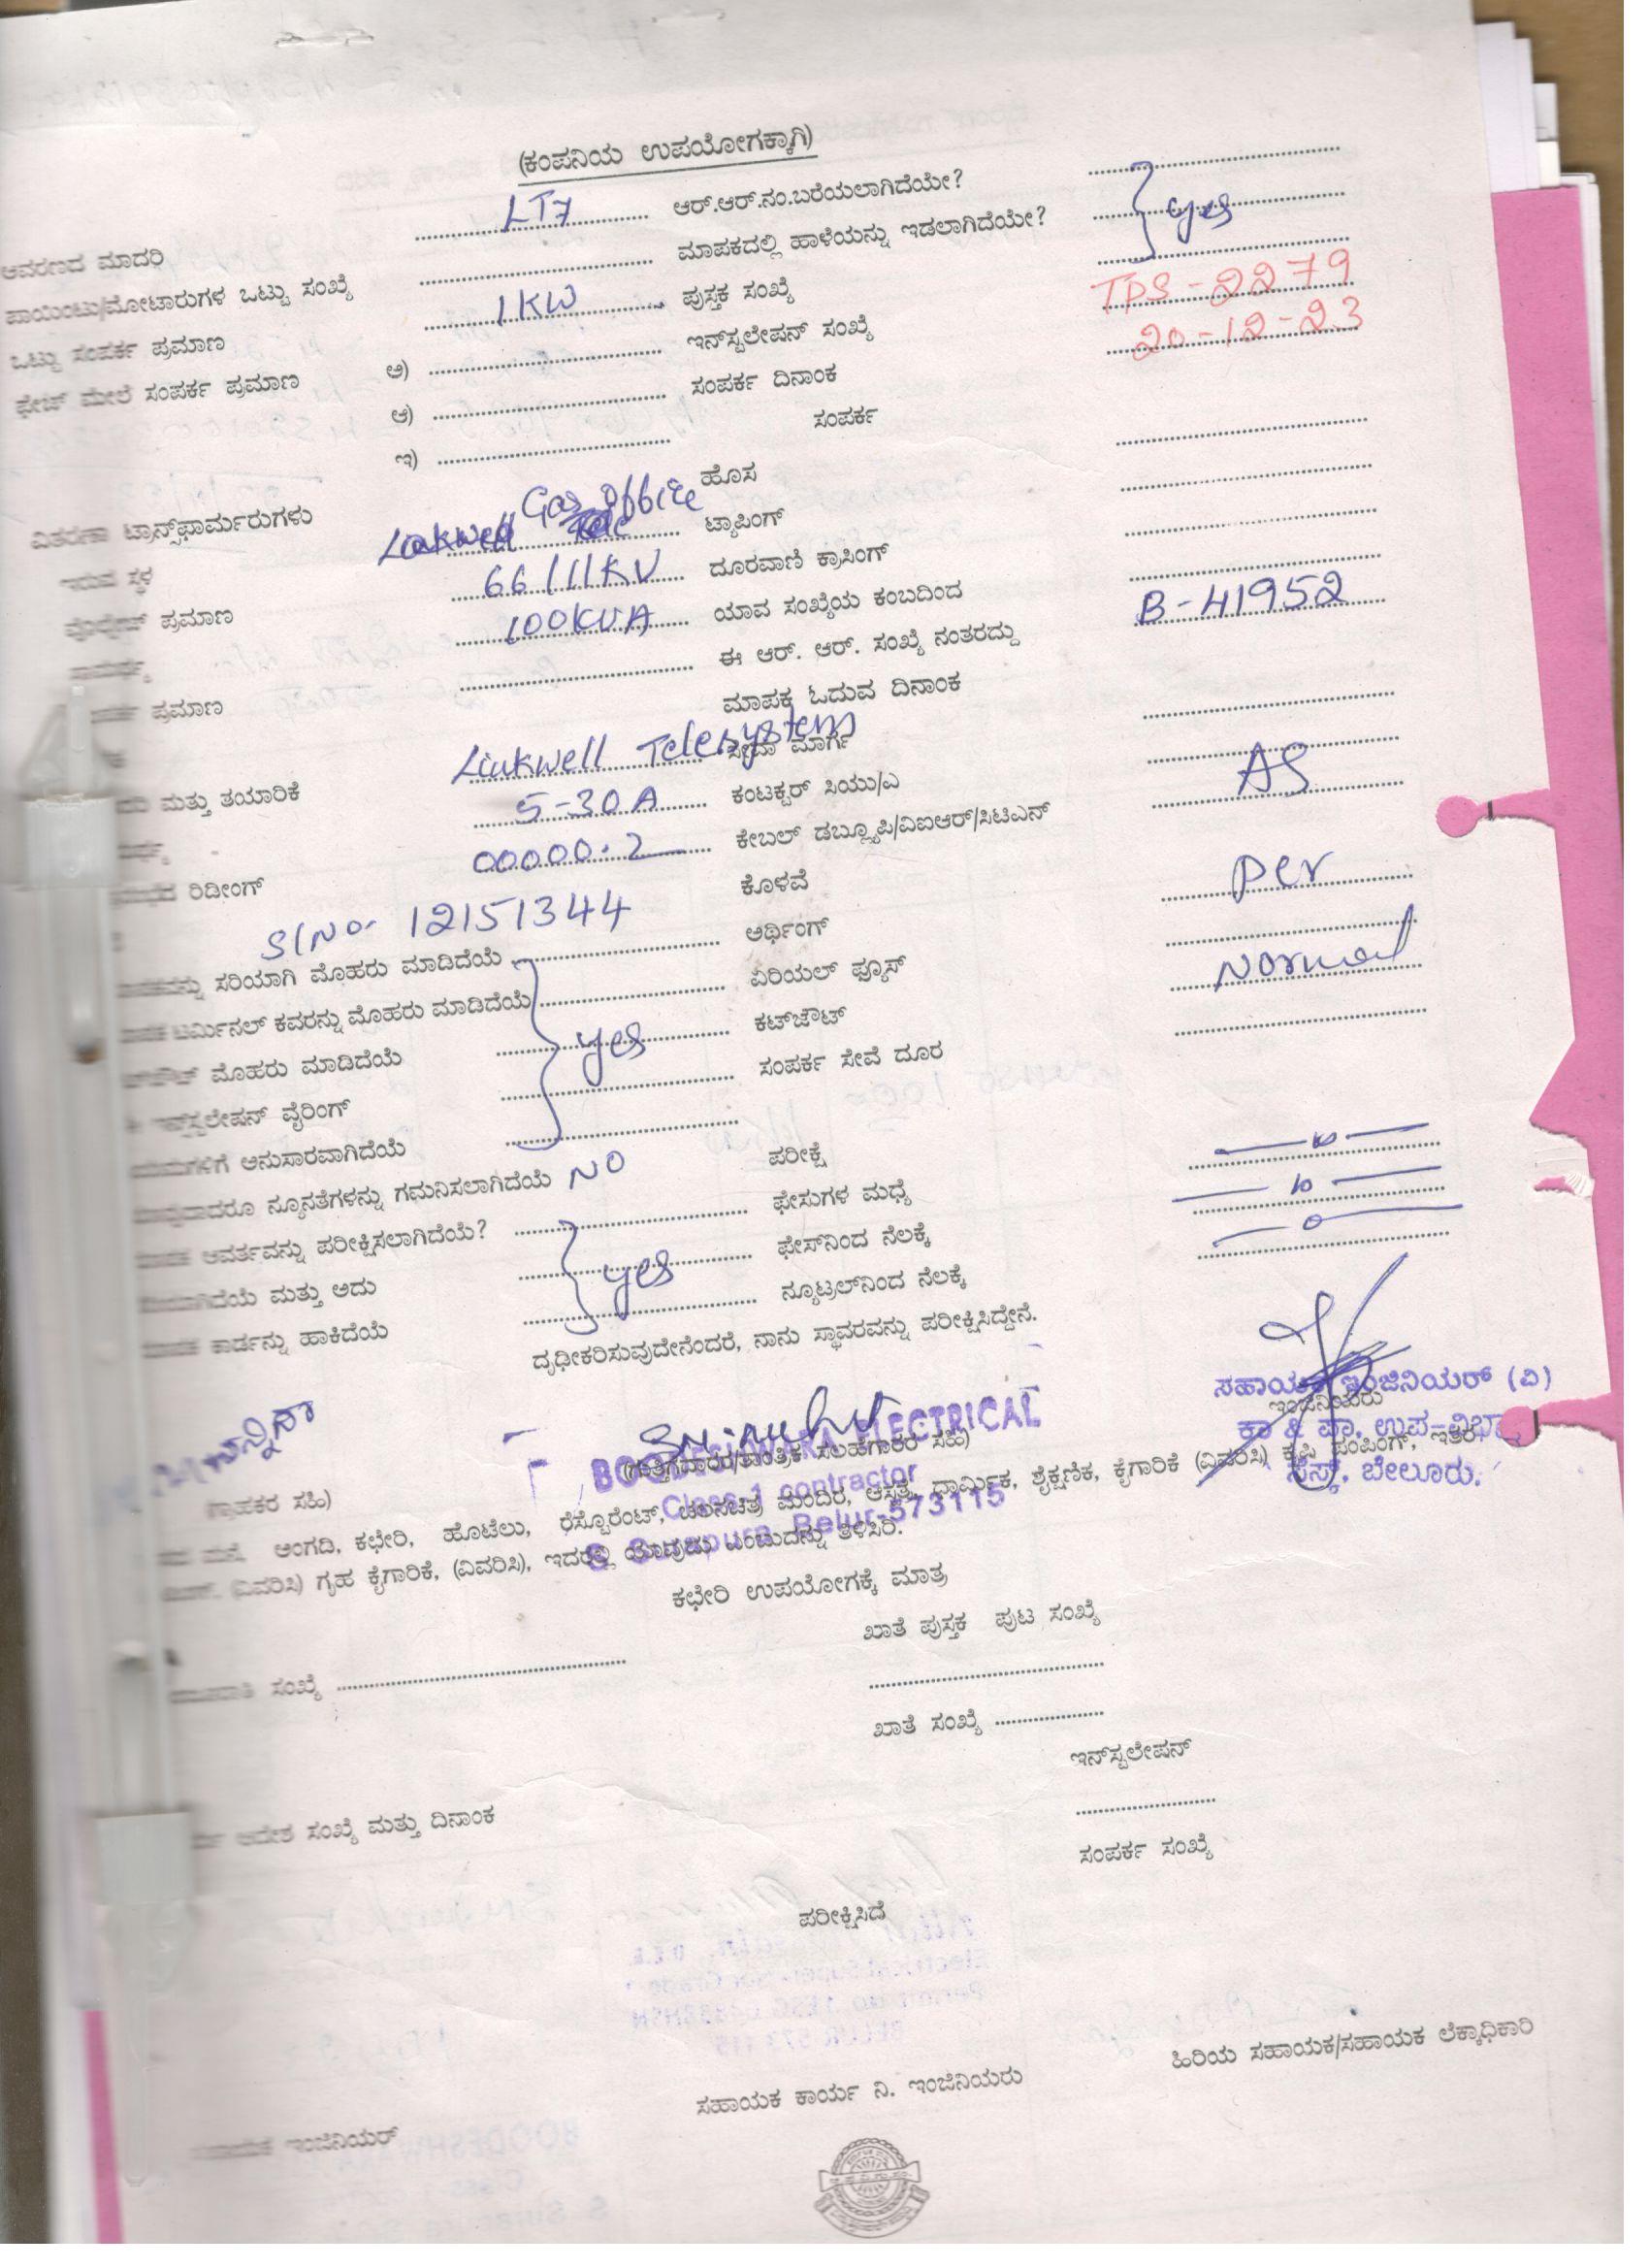 (ಕಂಪನಿಯ ಉಪಯೋಗಕ್ಕಾಗಿ)
ಆವರಣದ ಮಾದರಿ LT7 ಆರ್.ಆರ್.ನಂ.ಬರೆಯಲಾಗಿದೆಯೇ?
ಪಾಯಿಂಟು/ಮೋಟಾರುಗಳ ಒಟ್ಟು ಸಂಖ್ಯೆ ಮಾಪಕದಲ್ಲಿ ಹಾಳೆಯನ್ನು ಇಡಲಾಗಿದೆಯೇ? yes
ಒಟ್ಟು ಸಂಪರ್ಕ ಪ್ರಮಾಣ 1KW ಪುಸ್ತಕ ಸಂಖ್ಯೆ
ಫೇಜ್ ಮೇಲೆ ಸಂಪರ್ಕ ಪ್ರಮಾಣ ಅ) ಇನ್‌ಸ್ಟಲೇಷನ್ ಸಂಖ್ಯೆ TPS-2279
ಆ) ಸಂಪರ್ಕ ದಿನಾಂಕ 20-12-23
ಇ) ಸಂಪರ್ಕ
ವಿತರಣಾ ಟ್ರಾನ್ಸ್‌ಫಾರ್ಮರುಗಳು ಹೊಸ
ಇರುವ ಸ್ಥಳ Gas office ಟ್ಯಾಪಿಂಗ್
ವೋಲ್ಟೇಜ್ ಪ್ರಮಾಣ 66/11KV ದೂರವಾಣಿ ಕ್ರಾಸಿಂಗ್
ಸಾಮರ್ಥ್ಯ 100KVA ಯಾವ ಸಂಖ್ಯೆಯ ಕಂಬದಿಂದ
ಪ್ರಮಾಣ ಈ ಆರ್. ಆರ್. ಸಂಖ್ಯೆ ನಂತರದ್ದು B-41952
ಮಾಪಕ ಓದುವ ದಿನಾಂಕ
ಮತ್ತು ತಯಾರಿಕೆ Linkwell Telesystem ಸೇವಾ ಮಾರ್ಗ
5-30A ಕಂಟಕ್ಟರ್ ಸಿಯು/ಎ AS
ರಿಡೀಂಗ್ 00000.2 ಕೇಬಲ್ ಡಬ್ಲ್ಯೂಪಿ/ವಿಐಆರ್/ಸಿಟಿಎನ್
Sl No. 12151344 ಕೊಳವೆ Per
ಸರಿಯಾಗಿ ಮೊಹರು ಮಾಡಿದೆಯೆ ಅರ್ಥಿಂಗ್
ಟರ್ಮಿನಲ್ ಕವರನ್ನು ಮೊಹರು ಮಾಡಿದೆಯೆ ಏರಿಯಲ್ ಫ್ಯೂಸ್ Normal
ಮೊಹರು ಮಾಡಿದೆಯೆ yes ಕಟ್‌ಔಟ್
ಇನ್‌ಸ್ಟಲೇಷನ್ ವೈರಿಂಗ್ ಸಂಪರ್ಕ ಸೇವೆ ದೂರ
ಅನುಸಾರವಾಗಿದೆಯೆ
ನ್ಯೂನತೆಗಳನ್ನು ಗಮನಿಸಲಾಗಿದೆಯೆ NO ಪರೀಕ್ಷೆ
ಆವರ್ತವನ್ನು ಪರೀಕ್ಷಿಸಲಾಗಿದೆಯೆ? ಫೇಸುಗಳ ಮಧ್ಯೆ
ಮತ್ತು ಅದು yes ಫೇಸ್‌ನಿಂದ ನೆಲಕ್ಕೆ
ಕಾರ್ಡನ್ನು ಹಾಕಿದೆಯೆ ನ್ಯೂಟ್ರಲ್‌ನಿಂದ ನೆಲಕ್ಕೆ
ದೃಢೀಕರಿಸುವುದೇನೆಂದರೆ, ನಾನು ಸ್ಥಾವರವನ್ನು ಪರೀಕ್ಷಿಸಿದ್ದೇನೆ.
ಸಹಾಯಕ ಇಂಜಿನಿಯರ್ (ವಿ)
ಇಂಜಿನಿಯರು
ಕಾ & ಪಾ, ಉಪ-ವಿಭಾಗ
ಸೆಸ್ಕ್, ಬೇಲೂರು.
ELECTRICAL
(ಗುತ್ತಿಗೆದಾರರ/ತಾಂತ್ರಿಕ ಸಲಹೆಗಾರರ ಸಹಿ)
Class-1 contractor
Belur-573115
(ಗ್ರಾಹಕರ ಸಹಿ)
ಮನೆ, ಅಂಗಡಿ, ಕಛೇರಿ, ಹೊಟೆಲು, ರೆಸ್ಟೊರೆಂಟ್, ಚಲನಚಿತ್ರ ಮಂದಿರ, ಆಸ್ಪತ್ರೆ, ಧಾರ್ಮಿಕ, ಶೈಕ್ಷಣಿಕ, ಕೈಗಾರಿಕೆ (ವಿವರಿಸಿ) ಕೃಷಿ ಪಂಪಿಂಗ್, ಇತರೆ
(ವಿವರಿಸಿ) ಗೃಹ ಕೈಗಾರಿಕೆ, (ವಿವರಿಸಿ), ಇದರಲ್ಲಿ ಯಾವುದು ಎಂಬುದನ್ನು ತಿಳಿಸಿರಿ.
ಕಛೇರಿ ಉಪಯೋಗಕ್ಕೆ ಮಾತ್ರ
ಖಾತೆ ಪುಸ್ತಕ ಪುಟ ಸಂಖ್ಯೆ
ಸಂಖ್ಯೆ
ಖಾತೆ ಸಂಖ್ಯೆ
ಇನ್‌ಸ್ಟಲೇಷನ್
ಆದೇಶ ಸಂಖ್ಯೆ ಮತ್ತು ದಿನಾಂಕ
ಸಂಪರ್ಕ ಸಂಖ್ಯೆ
ಪರೀಕ್ಷಿಸಿದೆ
ಹಿರಿಯ ಸಹಾಯಕ/ಸಹಾಯಕ ಲೆಕ್ಕಾಧಿಕಾರಿ
ಸಹಾಯಕ ಕಾರ್ಯ ನಿ. ಇಂಜಿನಿಯರು
ಸಹಾಯಕ ಇಂಜಿನಿಯರ್